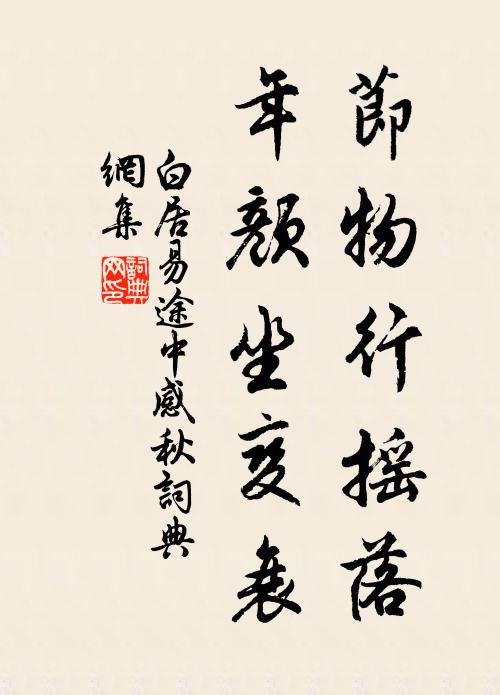 節物行搖落
年顏坐變衰
白居易途中感秋詞典
網集
詞典
网印